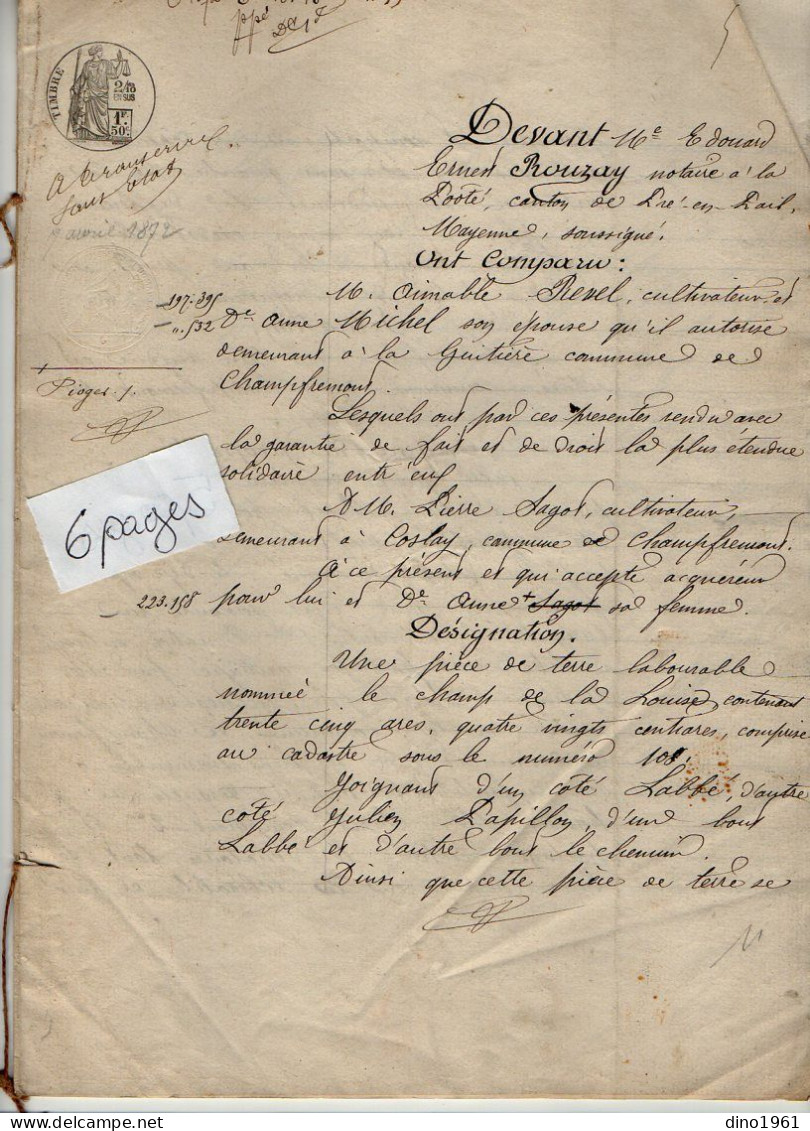 5
ppé
TIMBRE
2/10
EN SUS
1F.
50c.
A transcrire
sans état
avril 1872
197.395
".532
Pioger
6 pages
223.158
Devant Me Edouard
Ernest Rouzay notaire à la
Pooté, canton de Pré-en-Pail,
Mayenne, soussigné.
Ont Comparu :
M. Aimable Revel, cultivateur et
De Anne Michel son épouse qu'il autorise
demeurant à la Guitière commune de
Champfremont.
Lesquels ont par ces présentes vendu avec
la garantie de fait et de droit la plus étendue
solidaire entr'eux
A M. Pierre Sagot, cultivateur,
demeurant à Coslay, commune de Champfremont.
à ce présent et qui accepte acquéreur
pour lui et De Anne + Sagot sa femme.
Désignation.
Une pièce de terre labourable
nommée le champ de la Louise, contenant
trente cinq ares, quatre vingts centiares, comprise
au cadastre sous le numéro 108.
Joignant d'un coté Labbé, d'autre
coté Julien Papillon, d'un bout
Labbé et d'autre bout le chemin.
Ainsi que cette pièce de terre se
dino1961